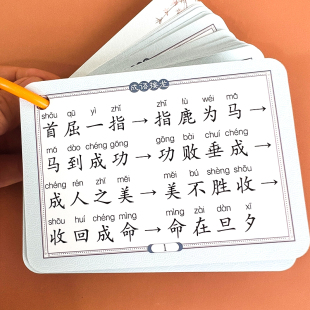 成语接龙
shǒu qū yì zhǐ zhǐ lù wéi mǎ
首屈一指→指鹿为马→
mǎ dào chéng gōng gōng bài chuí chéng
马到成功→功败垂成→
chéng rén zhī měi měi bú shèng shōu
成人之美→美不胜收→
shōu huí chéng mìng mìng zài dàn xī
收回成命→命在旦夕
1